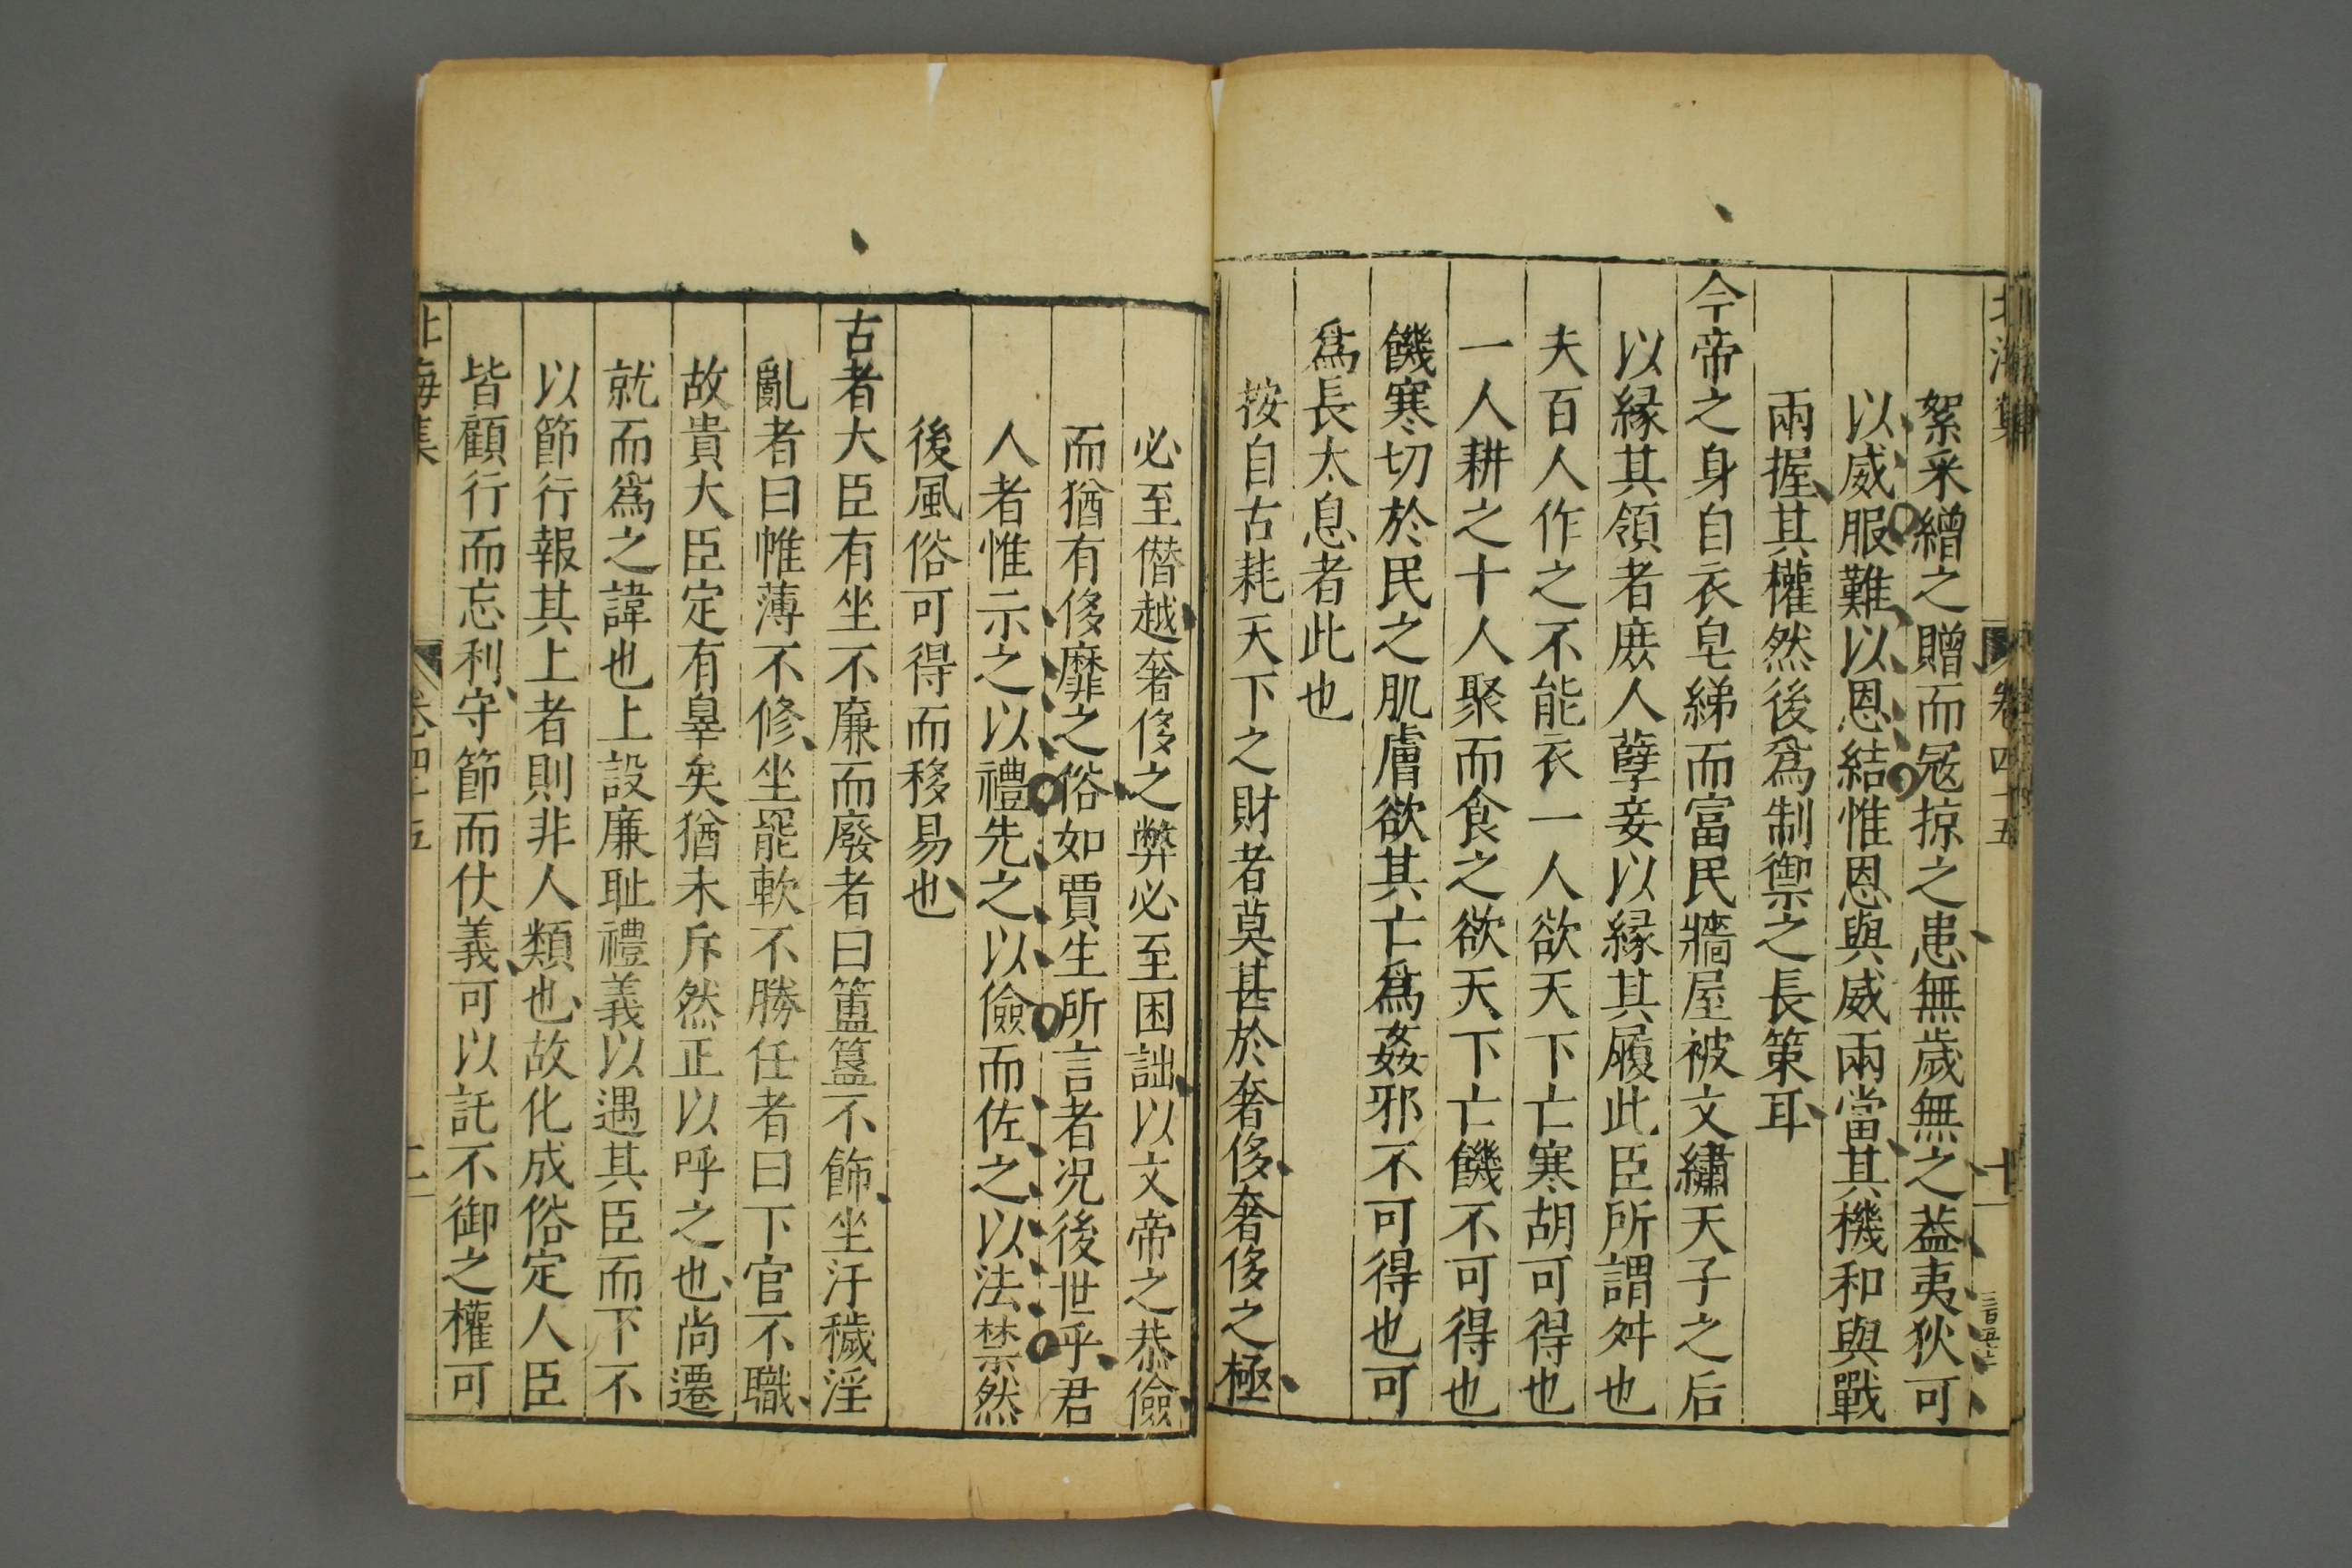 北海集 卷四十五 十一
絮采繒之贈而冦掠之患無歲無之葢夷狄可
以威服難以恩結惟恩與威兩當其機和與戰
兩握其權然後爲制禦之長策耳
今帝之身自衣皂綈而富民牆屋被文繡天子之后
以縁其領者庶人孽妾以縁其履此臣所謂舛也
夫百人作之不能衣一人欲天下亡寒胡可得也
一人耕之十人聚而食之欲天下亡饑不可得也
饑寒切於民之肌膚欲其亡爲姦邪不可得也可
爲長太息者此也
按自古耗天下之財者莫甚於奢侈奢侈之極
必至僣越奢侈之弊必至困詘以文帝之恭儉
而猶有侈靡之俗如賈生所言者况後世乎君
人者惟示之以禮先之以儉而佐之以法禁然
後風俗可得而移易也
古者大臣有坐不廉而廢者曰簠簋不飾坐汙穢淫
亂者曰帷薄不修坐罷軟不勝任者曰下官不職
故貴大臣定有辠矣猶未斥然正以呼之也尚遷
就而爲之諱也上設廉耻禮義以遇其臣而下不
以節行報其上者則非人類也故化成俗定人臣
皆顧行而忘利守節而仗義可以託不御之權可
北海集 卷四十五